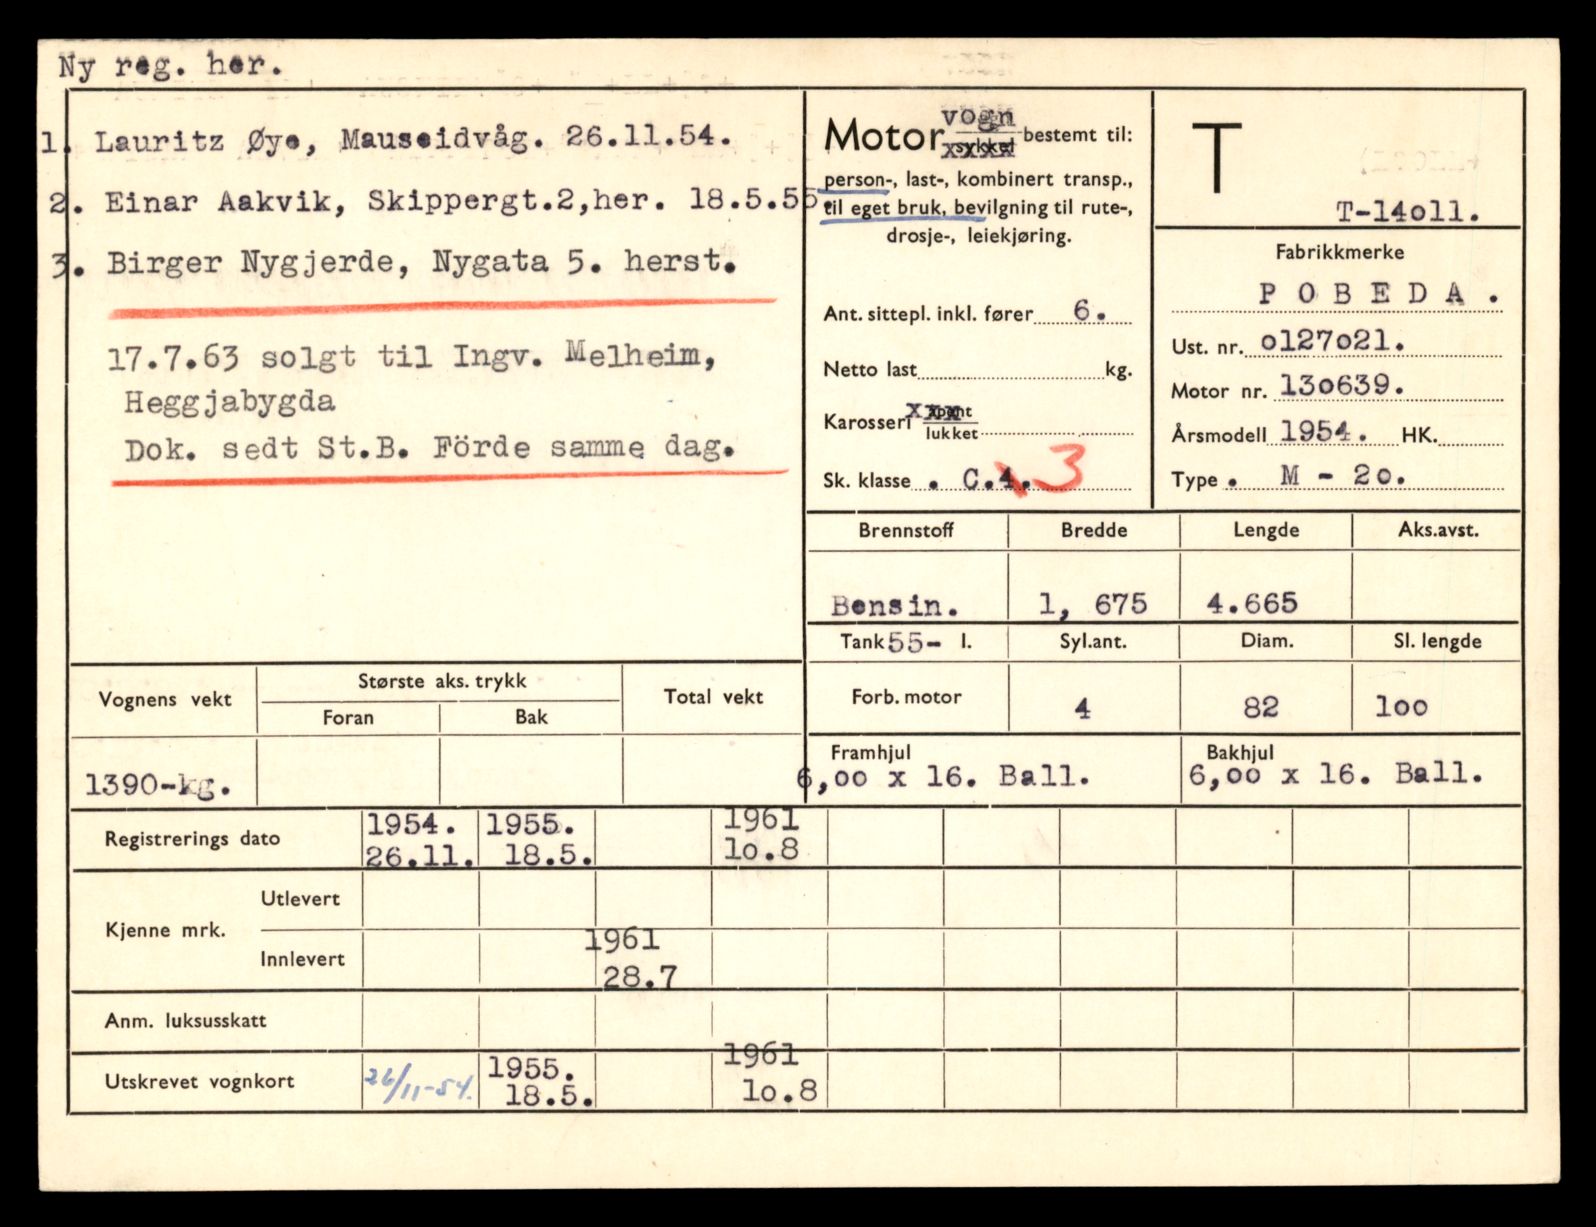 Ny reg. her.
1. Lauritz Øye, Mauseidvåg. 26.11.54.
2. Einar Aakvik, Skippergt.2,her. 18.5.55.
3. Birger Nygjerde, Nygata 5. herst.
17.7.63 solgt til Ingv. Melheim,
Heggjabygda
Dok. sedt St.B. Förde samme dag.
Motor vogn sykkel bestemt til:
xxxx
person-, last-, kombinert transp.,
til eget bruk, bevilgning til rute-,
drosje-, leiekjøring.
Ant. sittepl. inkl. fører 6.
Netto last kg.
Karosseri xxx åpent
lukket
Sk. klasse . C.4. 3
T
T-14o11.
Fabrikkmerke
P O B E D A .
Ust. nr. o127o21.
Motor nr. 13o639.
Årsmodell 1954. HK.
Type . M - 2o.
Brennstoff Bredde Lengde Aks.avst.
Bensin. 1, 675 4.665
Tank 55- l. Syl.ant. Diam. Sl. lengde
Forb. motor 4 82 1oo
Framhjul Bakhjul
6,oo x 16. Ball. 6,oo x 16. Ball.
Vognens vekt Største aks. trykk Total vekt
Foran Bak
1390-kg.
Registrerings dato 1954. 1955. 1961
26.11. 18.5. 1o.8
Kjenne mrk. Utlevert
Innlevert 1961
28.7
Anm. luksusskatt
Utskrevet vognkort 26/11-54. 1955. 1961
18.5. 1o.8